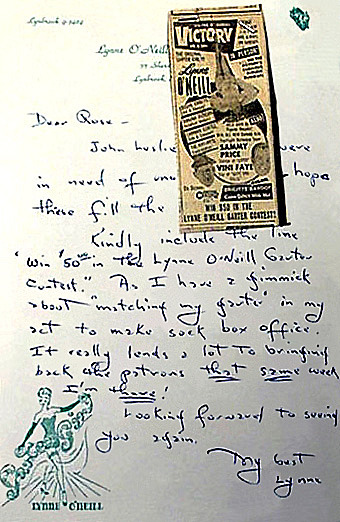 Lynbrook 9-
Lynne O'Neill
Lynbrook
Dear Rose -
John Leslie were
in need of hope
these fill the
Kindly include the line
"Win $50⁰⁰ in the Lynne O'Neill Garter
Contest." As I have a gimmick
about "matching my garter" in my
act to make sock box office.
It really lends a lot to bringing
back the patrons that same week
I'm there!
Looking forward to seeing
you again.
My best
Lynne
LYNNE O'NEILL
VICTORY
IN PERSON!
Lynne
O'NEILL
SAMMY
PRICE
VINI FAYE
BRIGITTE BARDOT
WIN $50 IN THE
LYNNE O'NEILL GARTER CONTEST!